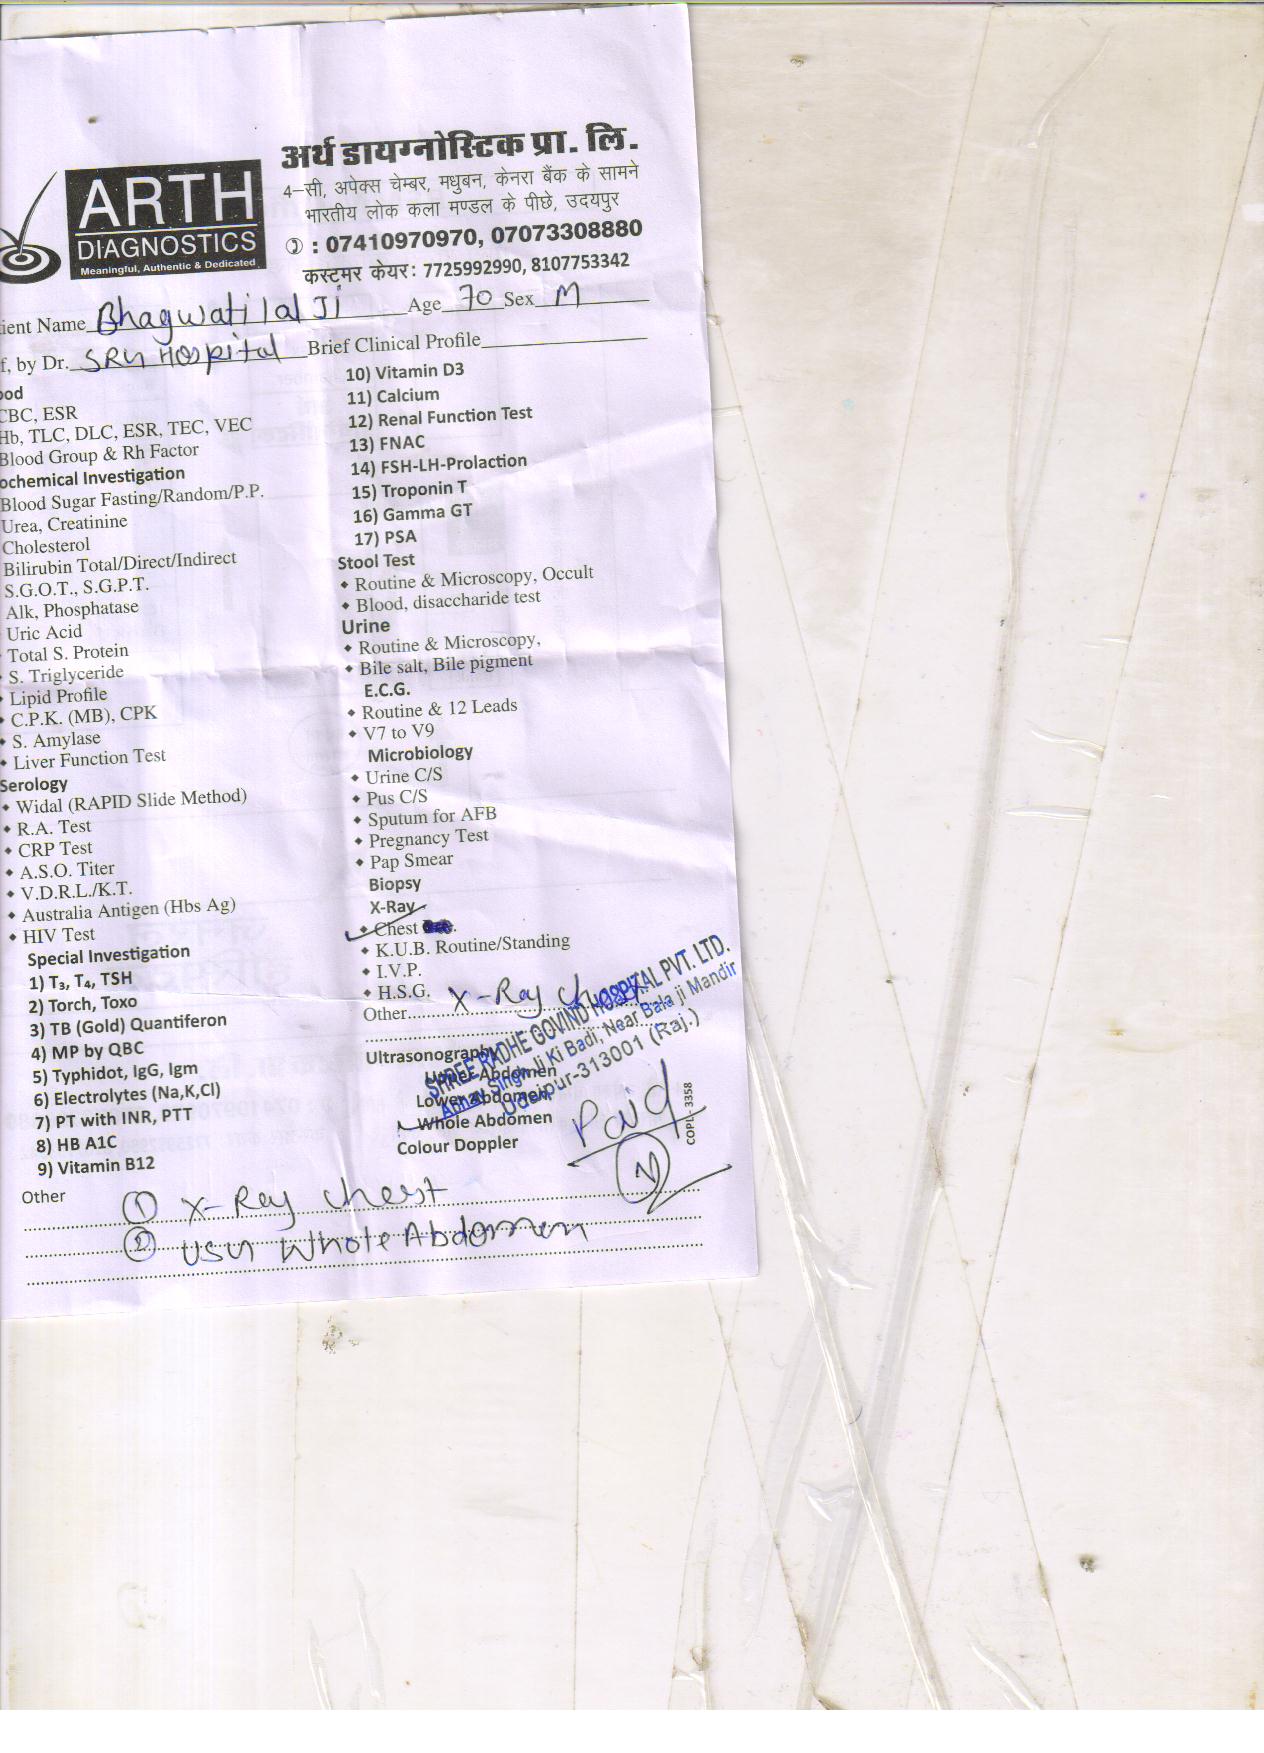 अर्थ डायग्नोस्टिक प्रा. लि.
4-सी, अपेक्स चेम्बर, मधुबन, केनरा बैंक के सामने
भारतीय लोक कला मण्डल के पीछे, उदयपुर
: 07410970970, 07073308880
कस्टमर केयर: 7725992990, 8107753342
ARTH
DIAGNOSTICS
Meaningful, Authentic & Dedicated
ient Name Bhagwati lal Ji Age 70 Sex M
f, by Dr. SRG Hospital Brief Clinical Profile
ood
CBC, ESR
Hb, TLC, DLC, ESR, TEC, VEC
Blood Group & Rh Factor
ochemical Investigation
Blood Sugar Fasting/Random/P.P.
Urea, Creatinine
Cholesterol
Bilirubin Total/Direct/Indirect
S.G.O.T., S.G.P.T.
Alk, Phosphatase
Uric Acid
Total S. Protein
S. Triglyceride
Lipid Profile
C.P.K. (MB), CPK
S. Amylase
Liver Function Test
Serology
Widal (RAPID Slide Method)
R.A. Test
CRP Test
A.S.O. Titer
V.D.R.L./K.T.
Australia Antigen (Hbs Ag)
HIV Test
Special Investigation
1) T₃, T₄, TSH
2) Torch, Toxo
3) TB (Gold) Quantiferon
4) MP by QBC
5) Typhidot, IgG, Igm
6) Electrolytes (Na,K,Cl)
7) PT with INR, PTT
8) HB A1C
9) Vitamin B12
10) Vitamin D3
11) Calcium
12) Renal Function Test
13) FNAC
14) FSH-LH-Prolaction
15) Troponin T
16) Gamma GT
17) PSA
Stool Test
Routine & Microscopy, Occult
Blood, disaccharide test
Urine
Routine & Microscopy,
Bile salt, Bile pigment
E.C.G.
Routine & 12 Leads
V7 to V9
Microbiology
Urine C/S
Pus C/S
Sputum for AFB
Pregnancy Test
Pap Smear
Biopsy
X-Ray
Chest
K.U.B. Routine/Standing
I.V.P.
H.S.G.
Other X-Ray chest
Ultrasonography
Upper Abdomen
Lower Abdomen
Whole Abdomen
Colour Doppler
SHREE RADHE GOVIND HOSPITAL PVT. LTD.
Abhay Singh Ji Ki Badi, Near Bala ji Mandir
Udaipur-313001 (Raj.)
Paid
COPL - 3358
Other
1 X-Ray chest
2 USG Whole Abdomen